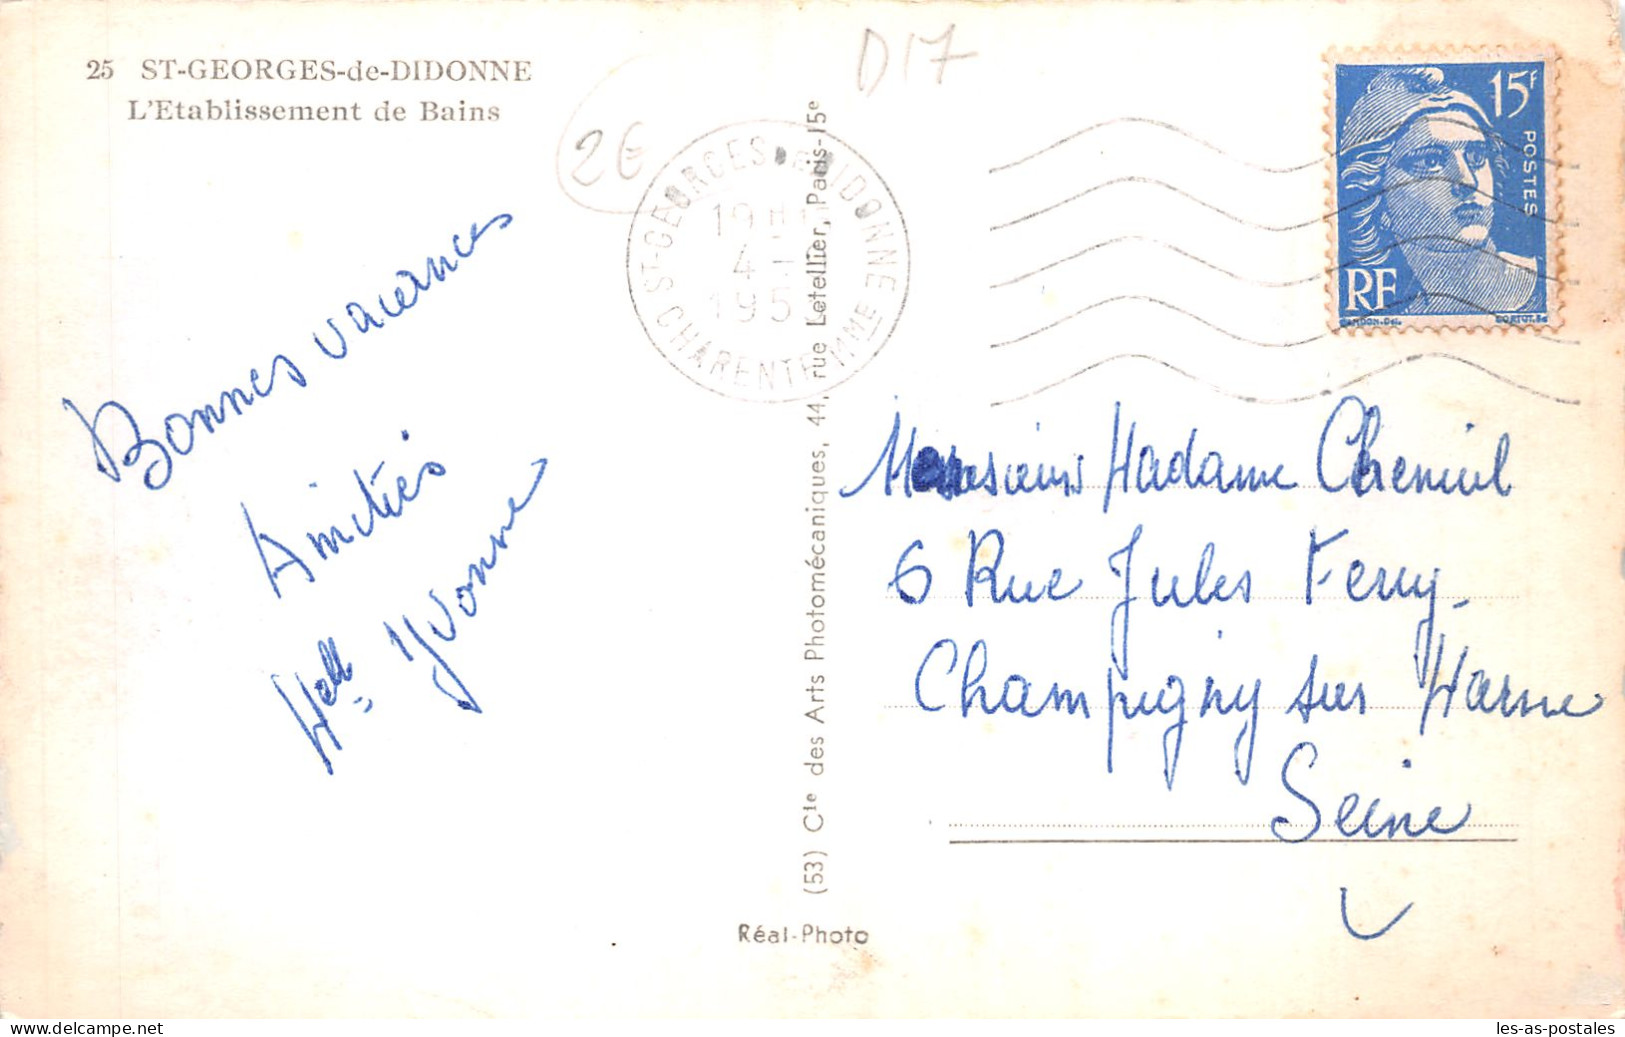 25 ST-GEORGES-de-DIDONNE
L'Etablissement de Bains
2€
D17
ST-GEORGES DE DIDONNE
19H
4
195
CHARENTE MME
15F
POSTES
RF
Bonnes vacances
Amitiés
Hell Yvonne
Monsieur Madame Cheneuil
6 Rue Jules Ferry
Champigny sur Marne
Seine
(53) Cie des Arts Photomécaniques, 44, rue Letellier, Paris-15e
Réal-Photo
https://www.delcampe.net
les-as-postales